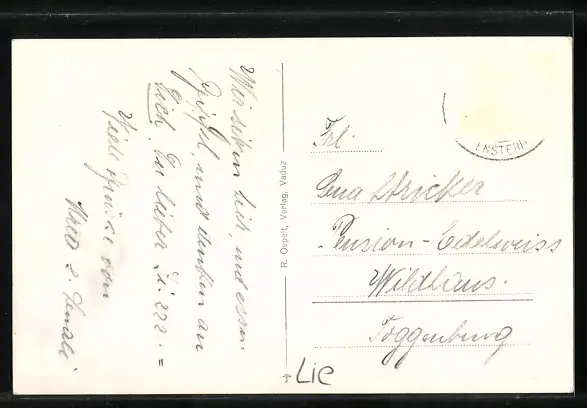 Wir sitzen hier, und essen
Zipfel, und denken an
Dich. Du lieber
Viele Grüsse von
R. Ospelt, Verlag, Vaduz
ENSTEIN
Frl.
Lina Stricker
Pension - Edelweiss
Wildhaus.
Toggenburg
Lie